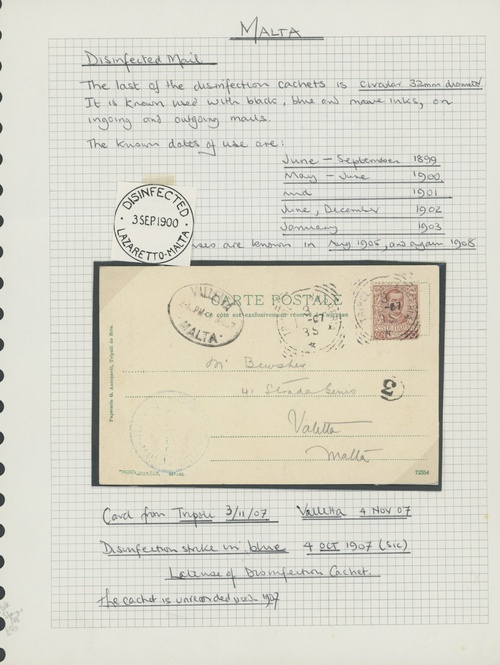 MALTA
Disinfected Mail
The last of the disinfection cachets is circular 32mm diameter
It is known used with black, blue and mauve inks, on
ingoing and outgoing mails.
The known dates of use are:
June - September 1899
May - June 1900
mid 1901
June, December 1902
January 1903
DISINFECTED
3 SEP. 1900
LAZARETTO-MALTA
uses are known in Aug 1905, and again 1906
CARTE POSTALE
VALLETTA
MALTA
Mr Bewsher
41 Strada Genio
Valetta
Malta
3
72554
Card from Tripoli 3/11/07 Valletta 4 NOV 07
Disinfection strike in blue 4 OCT 1907 (sic)
of Disinfection Cachet.
The cachet is unrecorded used 1907